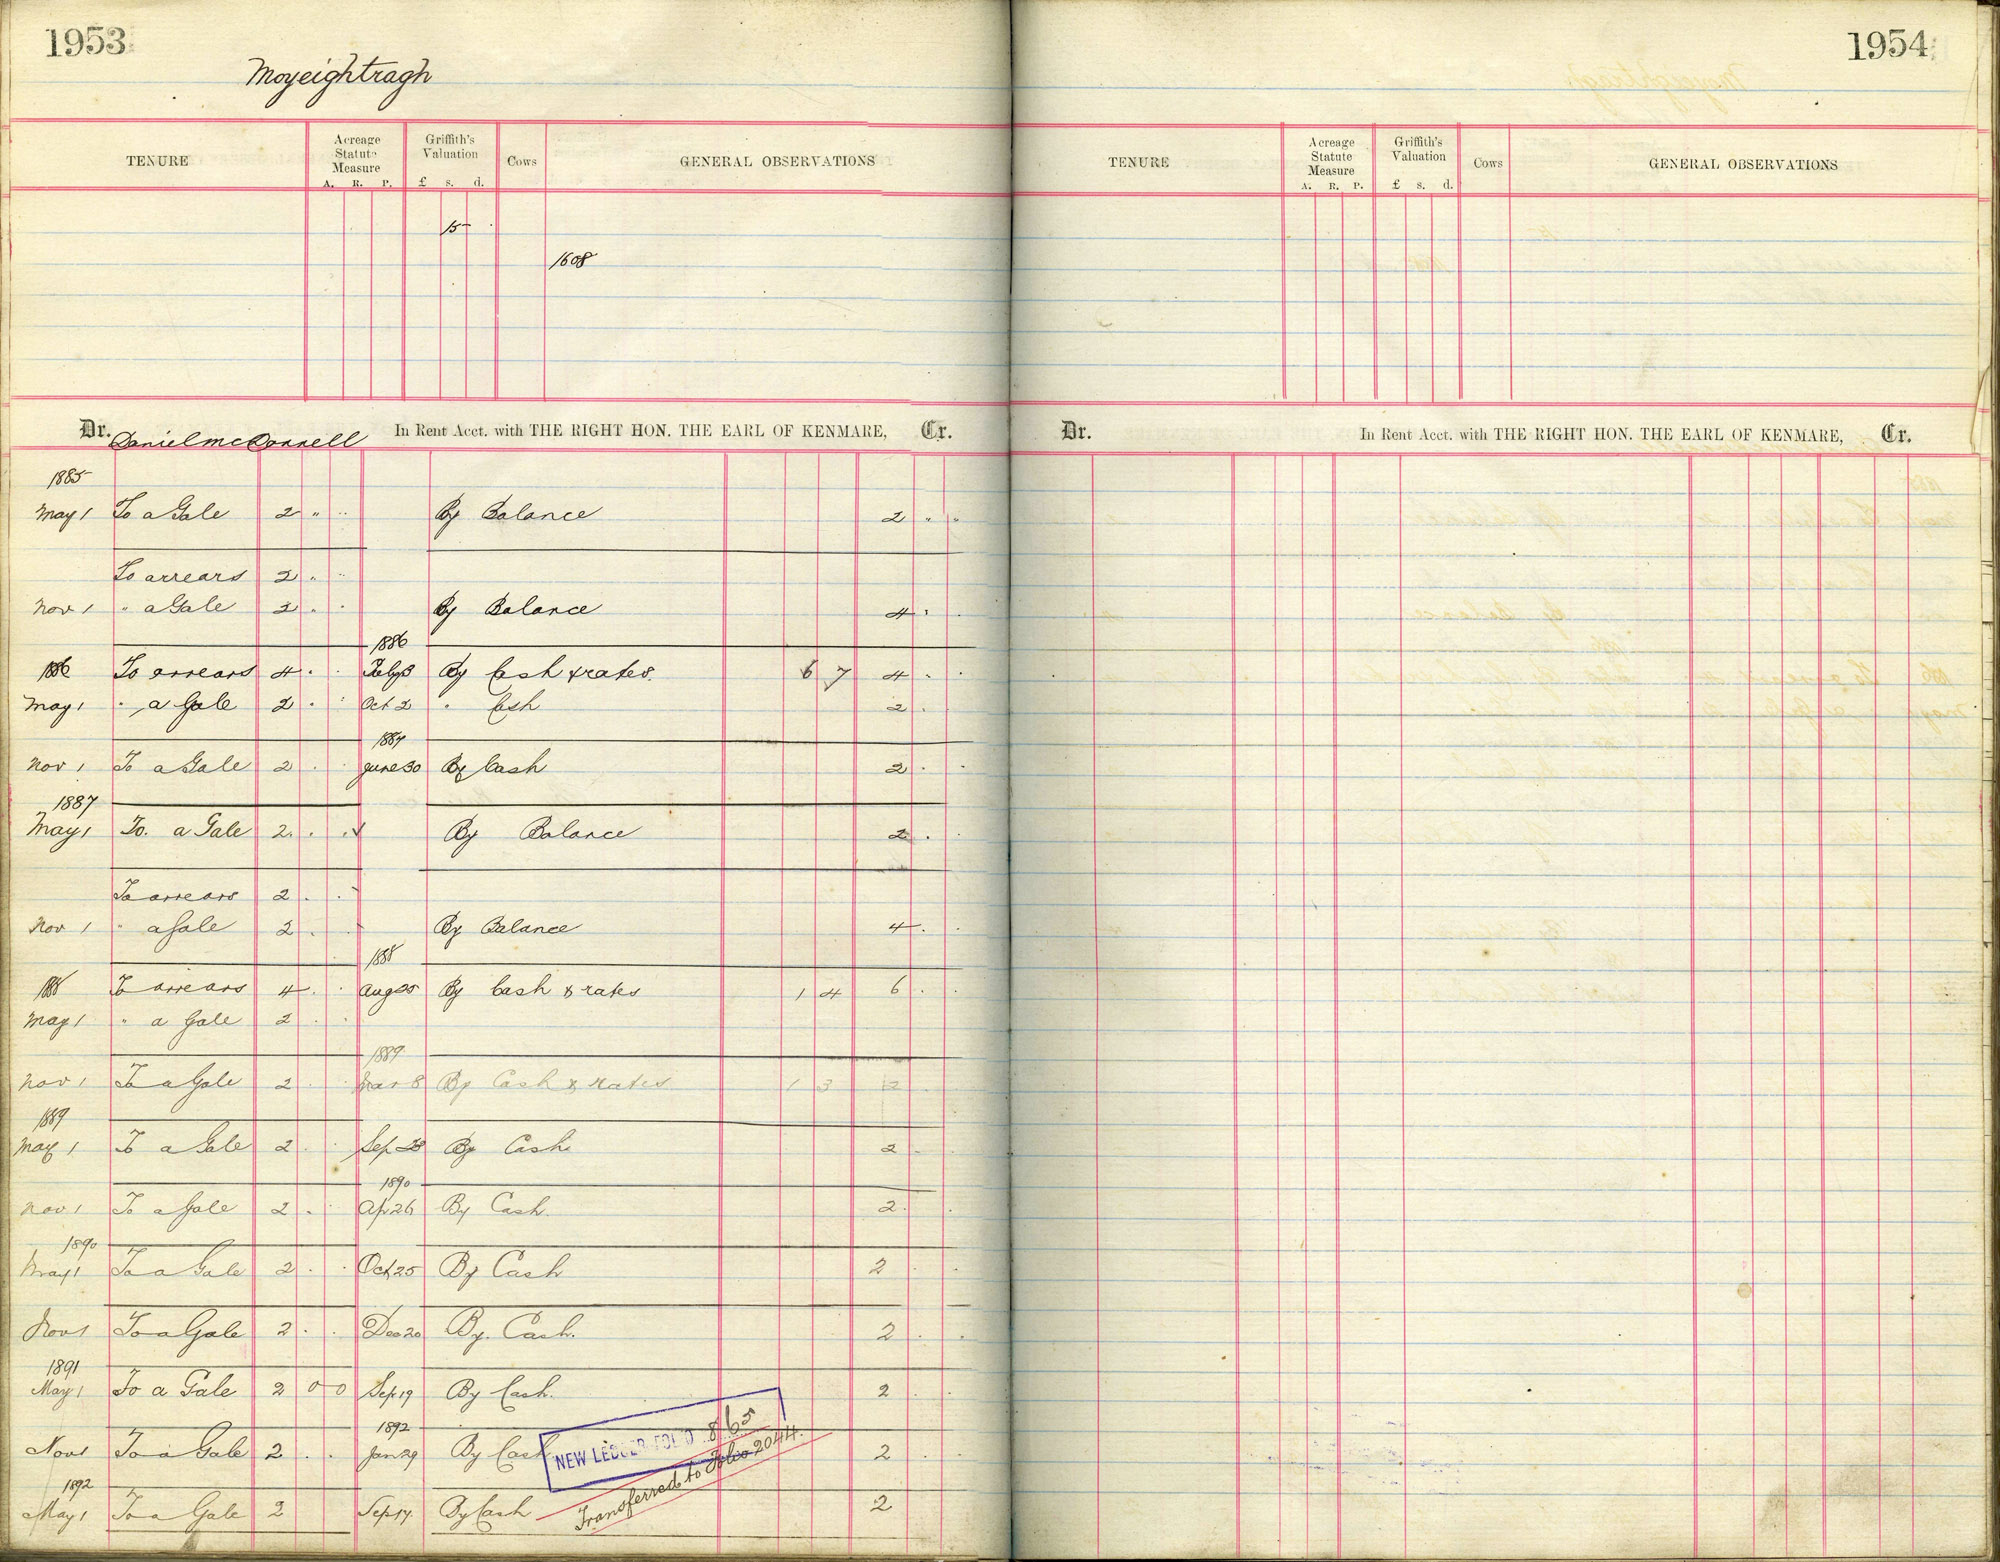 1953
Moyeightragh
TENURE Acreage Statute Measure A. R. P. Griffith's Valuation £ s. d. Cows GENERAL OBSERVATIONS
15 -
1608
Dr. Daniel McDonnell In Rent Acct. with THE RIGHT HON. THE EARL OF KENMARE, Cr.
1885
May 1 To a Gale 2 " " By Balance 2 " "
To arrears 2 "
Nov 1 " a Gale 2 " By Balance 4
1886
1886 To arrears 4 By Cash & rates. 6 7 4
May 1 " a Gale 2 Oct 2 " Cash 2
1887
Nov 1 To a Gale 2 June 30 By Cash 2
1887
May 1 To. a Gale 2 By Balance 2
To arrears 2
Nov 1 " a Gale 2 By Balance 4
1888
1888 To arrears 4 Aug 25 By Cash & rates 1 4 6
May 1 " a Gale 2
1889
Nov 1 To a Gale 2 Mar 8 By Cash & rates 1 3 2
1889
May 1 To a Gale 2 Sep 28 By Cash 2
1890
Nov 1 To a Gale 2 Ap 26 By Cash 2
1890
May 1 To a Gale 2 Oct 25 By Cash 2
Nov 1 To a Gale 2 Dec 20 By. Cash. 2
1891
May 1 To a Gale 2 0 0 Sep 19 By Cash. 2
1892
Nov 1 To a Gale 2 Jan 29 By Cash 2
NEW LEDGER FOLIO 865
1892
May 1 To a Gale 2 Sep 17 By Cash 2
Transferred to Folio 2044.
1954
TENURE Acreage Statute Measure A. R. P. Griffith's Valuation £ s. d. Cows GENERAL OBSERVATIONS
Dr. In Rent Acct. with THE RIGHT HON. THE EARL OF KENMARE, Cr.